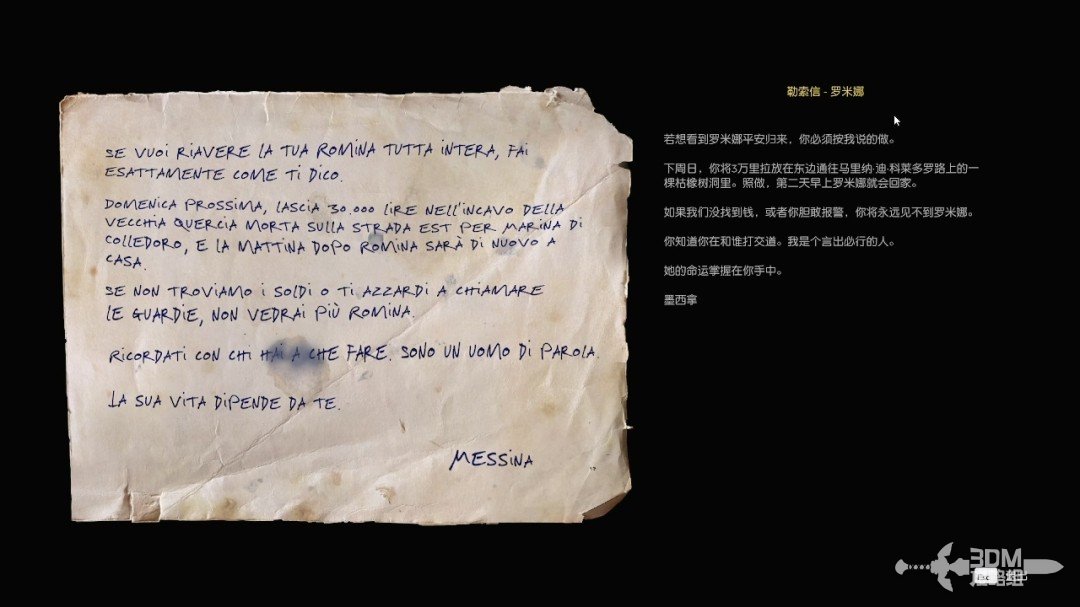 SE VUOI RIAVERE LA TUA ROMINA TUTTA INTERA, FAI
ESATTAMENTE COME TI DICO.
DOMENICA PROSSIMA, LASCIA 30.000 LIRE NELL'INCAVO DELLA
VECCHIA QUERCIA MORTA SULLA STRADA EST PER MARINA DI
COLLEDORO, E LA MATTINA DOPO ROMINA SARÀ DI NUOVO A
CASA.
SE NON TROVIAMO I SOLDI O TI AZZARDI A CHIAMARE
LE GUARDIE, NON VEDRAI PIÙ ROMINA.
RICORDATI CON CHI HAI A CHE FARE. SONO UN UOMO DI PAROLA.
LA SUA VITA DIPENDE DA TE.
MESSINA
勒索信 - 罗米娜
若想看到罗米娜平安归来，你必须按我说的做。
下周日，你将3万里拉放在东边通往马里纳·迪·科莱多罗路上的一
棵枯橡树洞里。照做，第二天早上罗米娜就会回家。
如果我们没找到钱，或者你胆敢报警，你将永远见不到罗米娜。
你知道你在和谁打交道。我是个言出必行的人。
她的命运掌握在你手中。
墨西拿
3DM